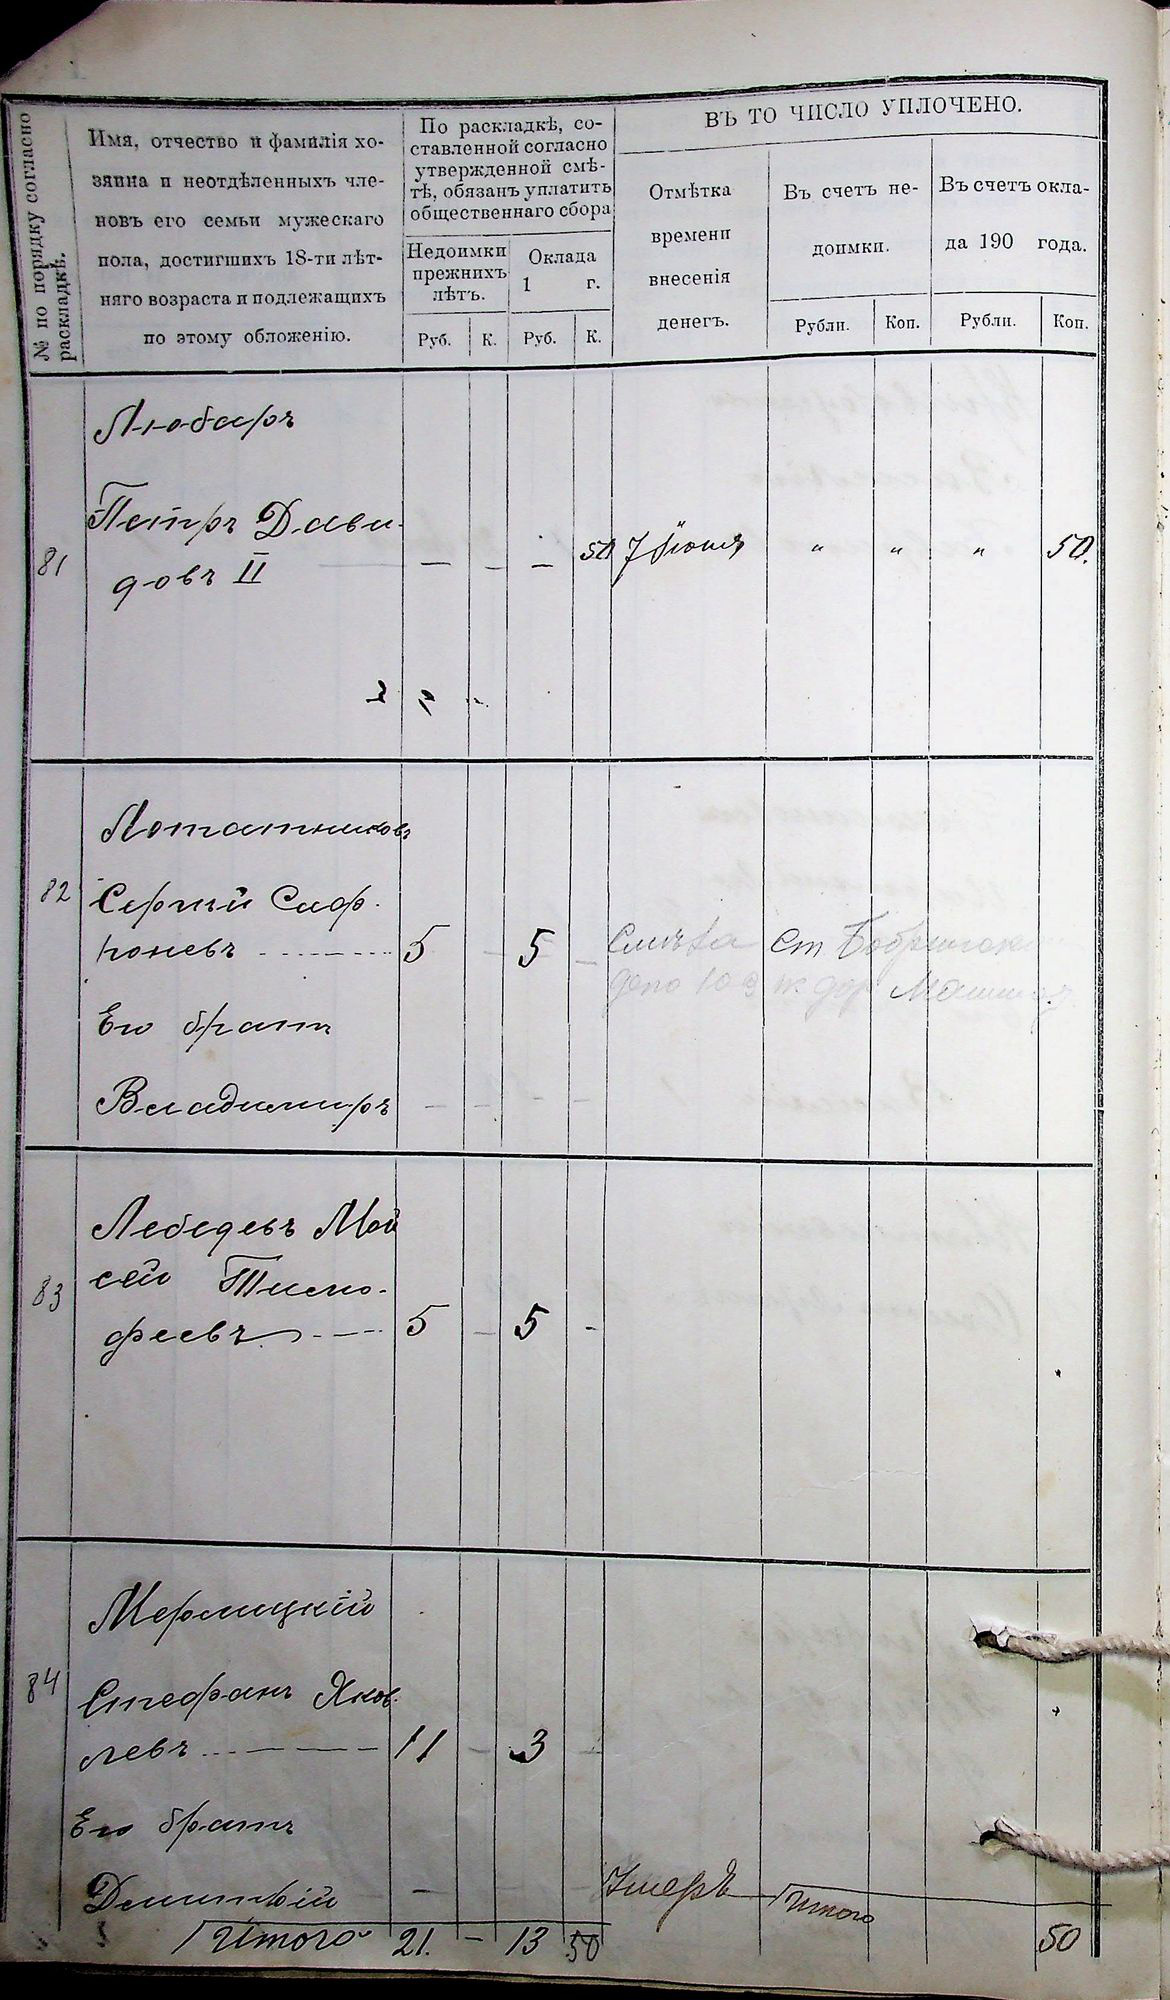 № по порядку согласно
раскладкѣ.
Имя, отчество и фамилія хо-
зяина и неотдѣленныхъ чле-
новъ его семьи мужескаго
пола, достигшихъ 18-ти лѣт-
няго возраста и подлежащихъ
по этому обложенію.
По раскладкѣ, со-
ставленной согласно
утвержденной смѣ-
тѣ, обязанъ уплатить
общественнаго сбора
Недоимки
прежнихъ
лѣтъ.
Оклада
1 г.
Руб. К. Руб. К.
ВЪ ТО ЧИСЛО УПЛОЧЕНО.
Отмѣтка
времени
внесенія
денегъ.
Въ счетъ не-
доимки.
Въ счетъ окла-
да 190 года.
Рубли. Коп. Рубли. Коп.
Любаръ
Петръ Дави-
81 довъ II — — — 50 7 Іюня " " " 50.
82 Лотатниковъ
Сергѣй Саф-
роневъ 5 - 5 -
Его братъ
Владимиръ - - - -
83 Лебедевъ Мой
сей Тимо-
феевъ 5 - 5 -
Мерлицкій
84 Стефанъ Яков-
левъ 11 - 3 -
Его братъ
Дмитрій - Умеръ
Итого 21. - 13 50 Итого 50